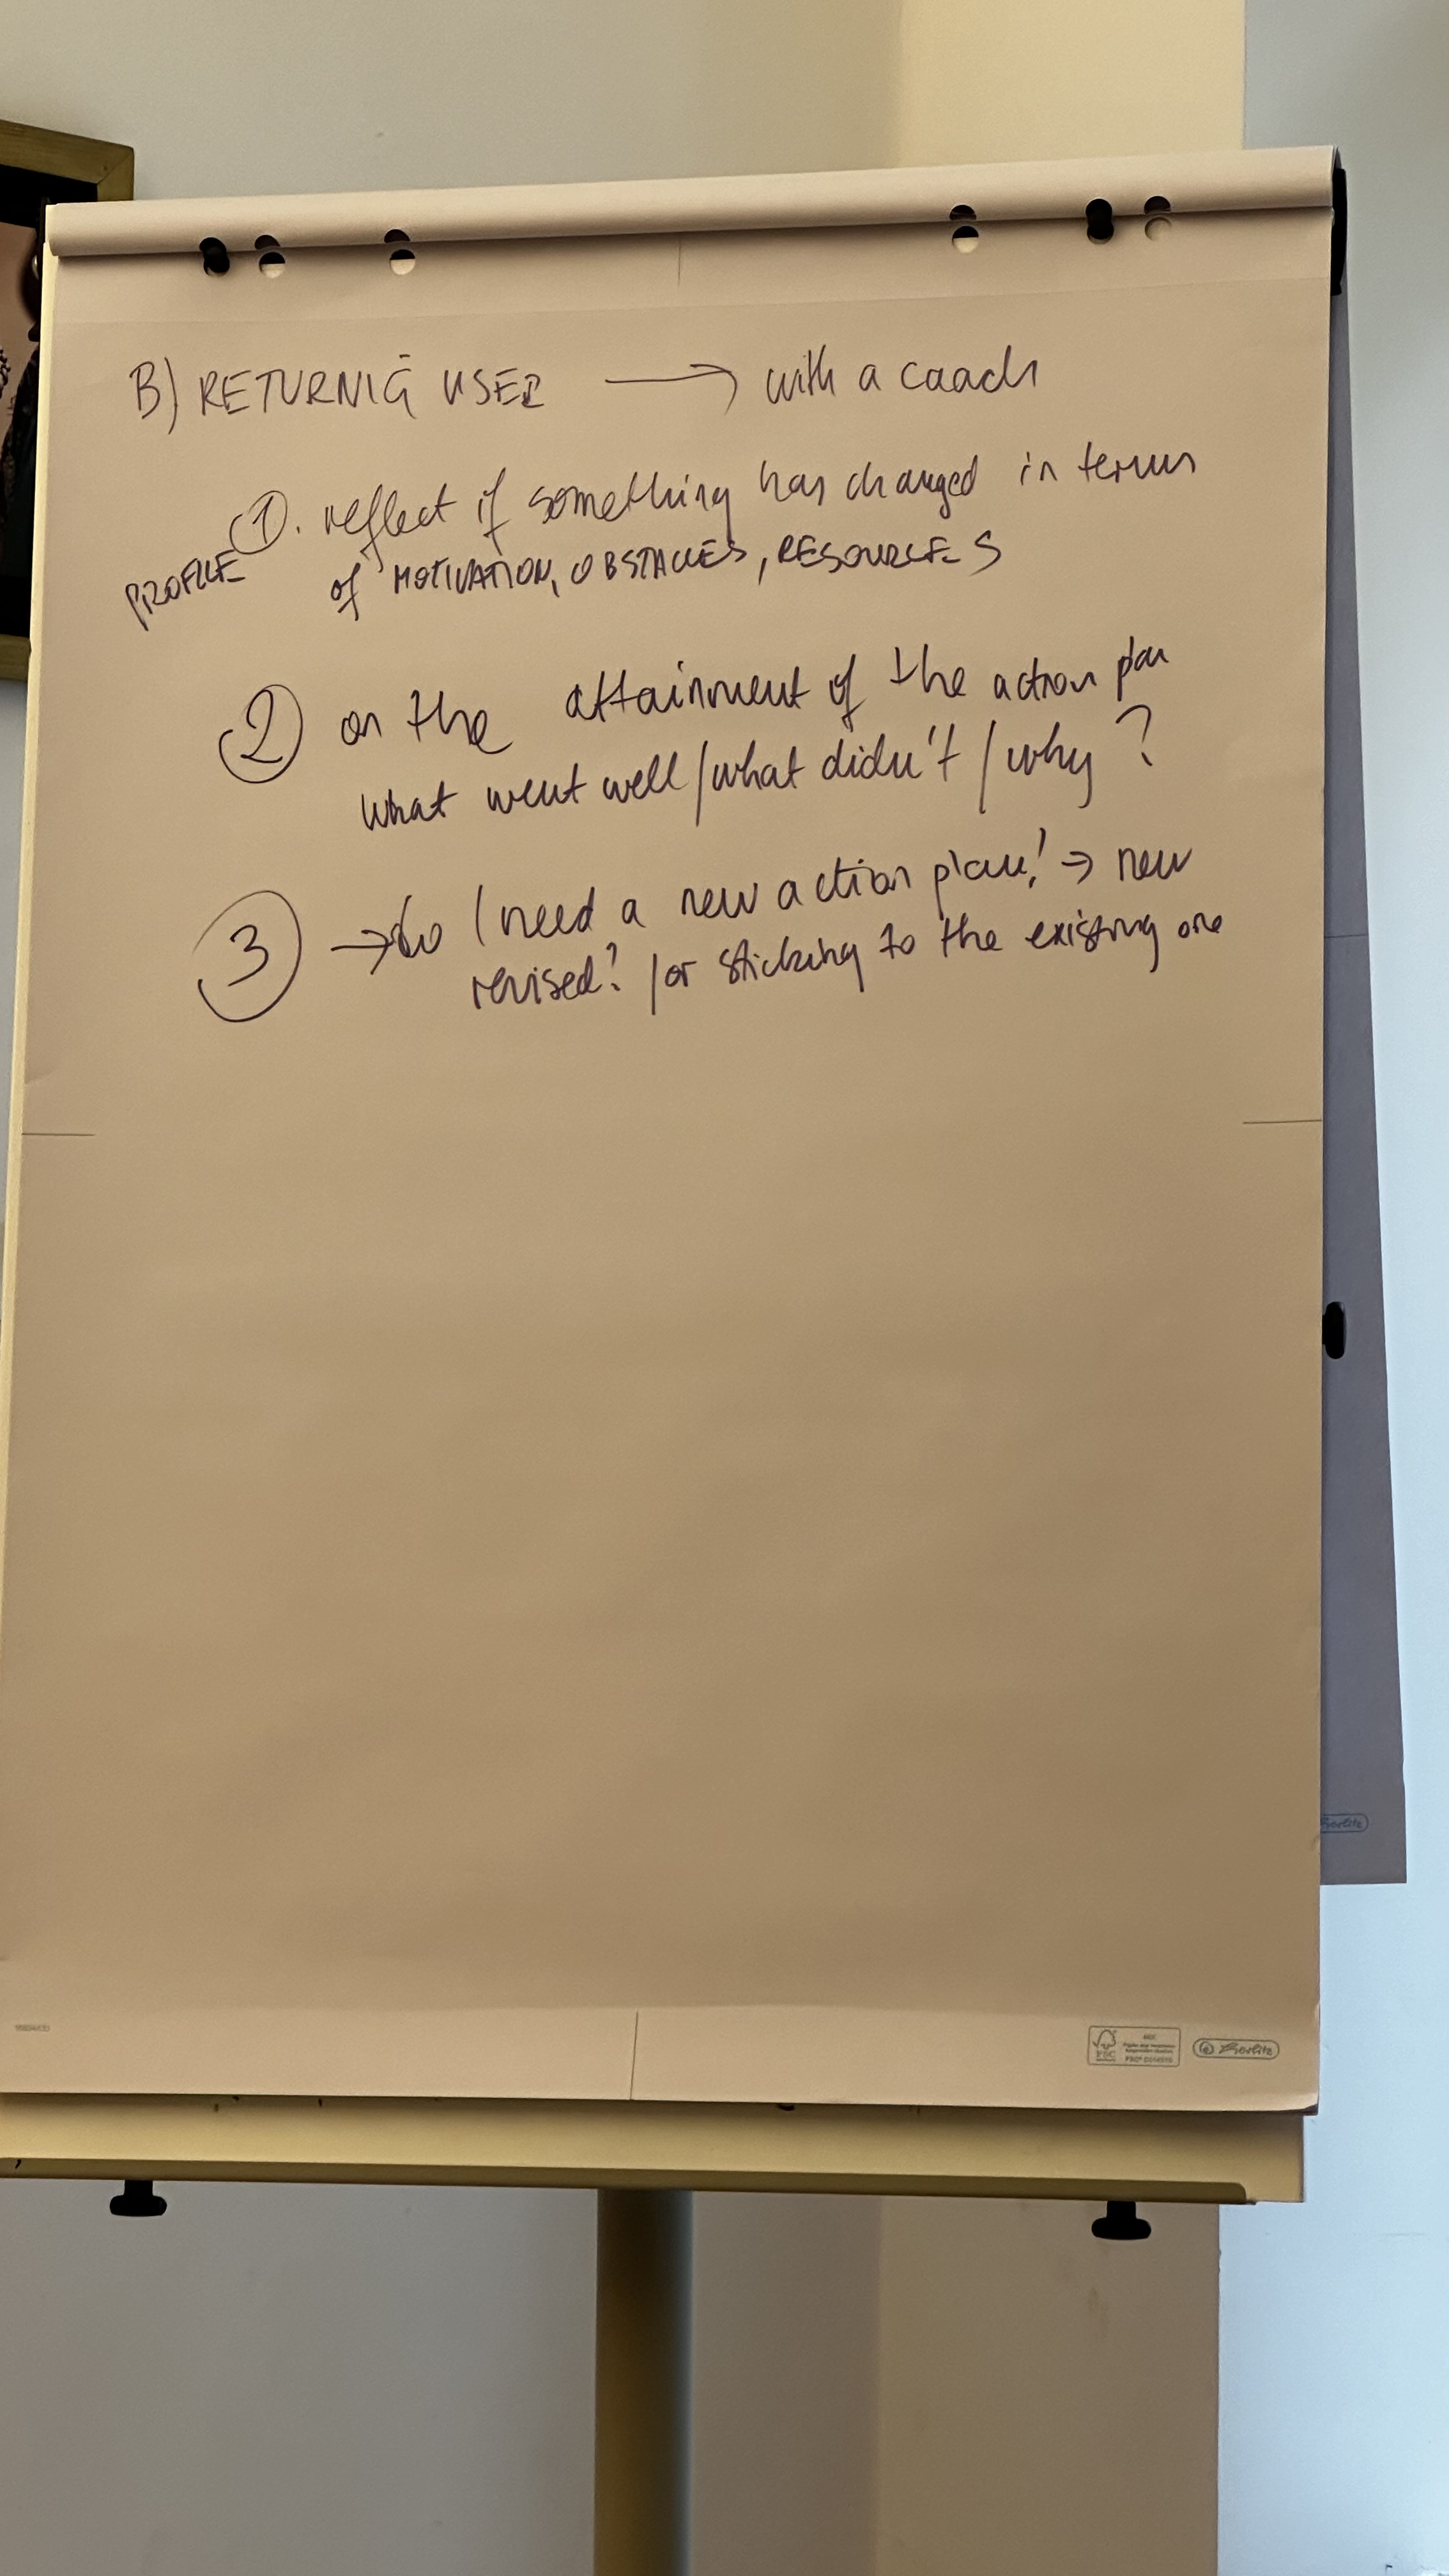 B) RETURNIG USER → with a coach
1. reflect if something has changed in terms
PROFILE
of MOTIVATION, OBSTACLES, RESOURCES
2 on the attainment of the action plan
what went well / what didn't / why?
3 → do I need a new action plan! → new
revised? / or sticking to the existing one
herlitz
FSC
herlitz